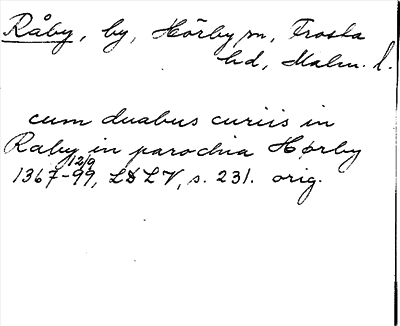 Råby, by, Hörby sn, Frosta
hd, Malm. l.
cum duabus curiis in
Raby in parochia Hørby
12/9
1367-99, LDLV, s. 231. orig.